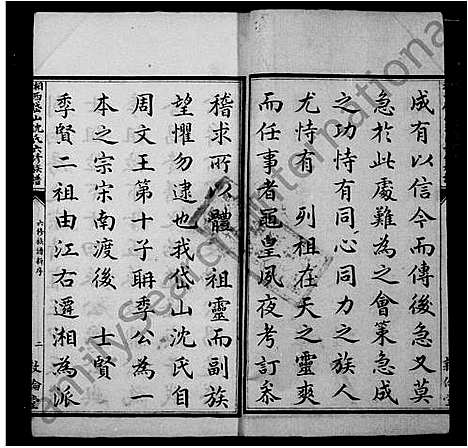 成有以信今而傳後急又莫
急於此處難為之會策急成
之功恃有同心同力之族人
尤恃有 列祖在天之靈爽
而任事者黽皇夙夜考訂叅
稽求所以體 祖靈而副族
望懼勿逮也我岱山沈氏自
周文王第十子聃季公為一
本之宗宋南渡後 士賢
季賢二祖由江右遷湘為派
湘西岱山沈氏六修族譜
六修族譜新序
二 敦倫堂
FamilySearch International